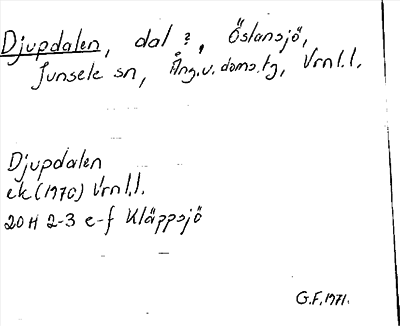 Djupdalen, dal ?, Östansjö,
Junsele sn, Ång.v. doms.tg, Vrnl.l.
Djupdalen
ek (1970) Vrnl.l.
20 H 2-3 e-f Kläppsjö
G.F. 1971.